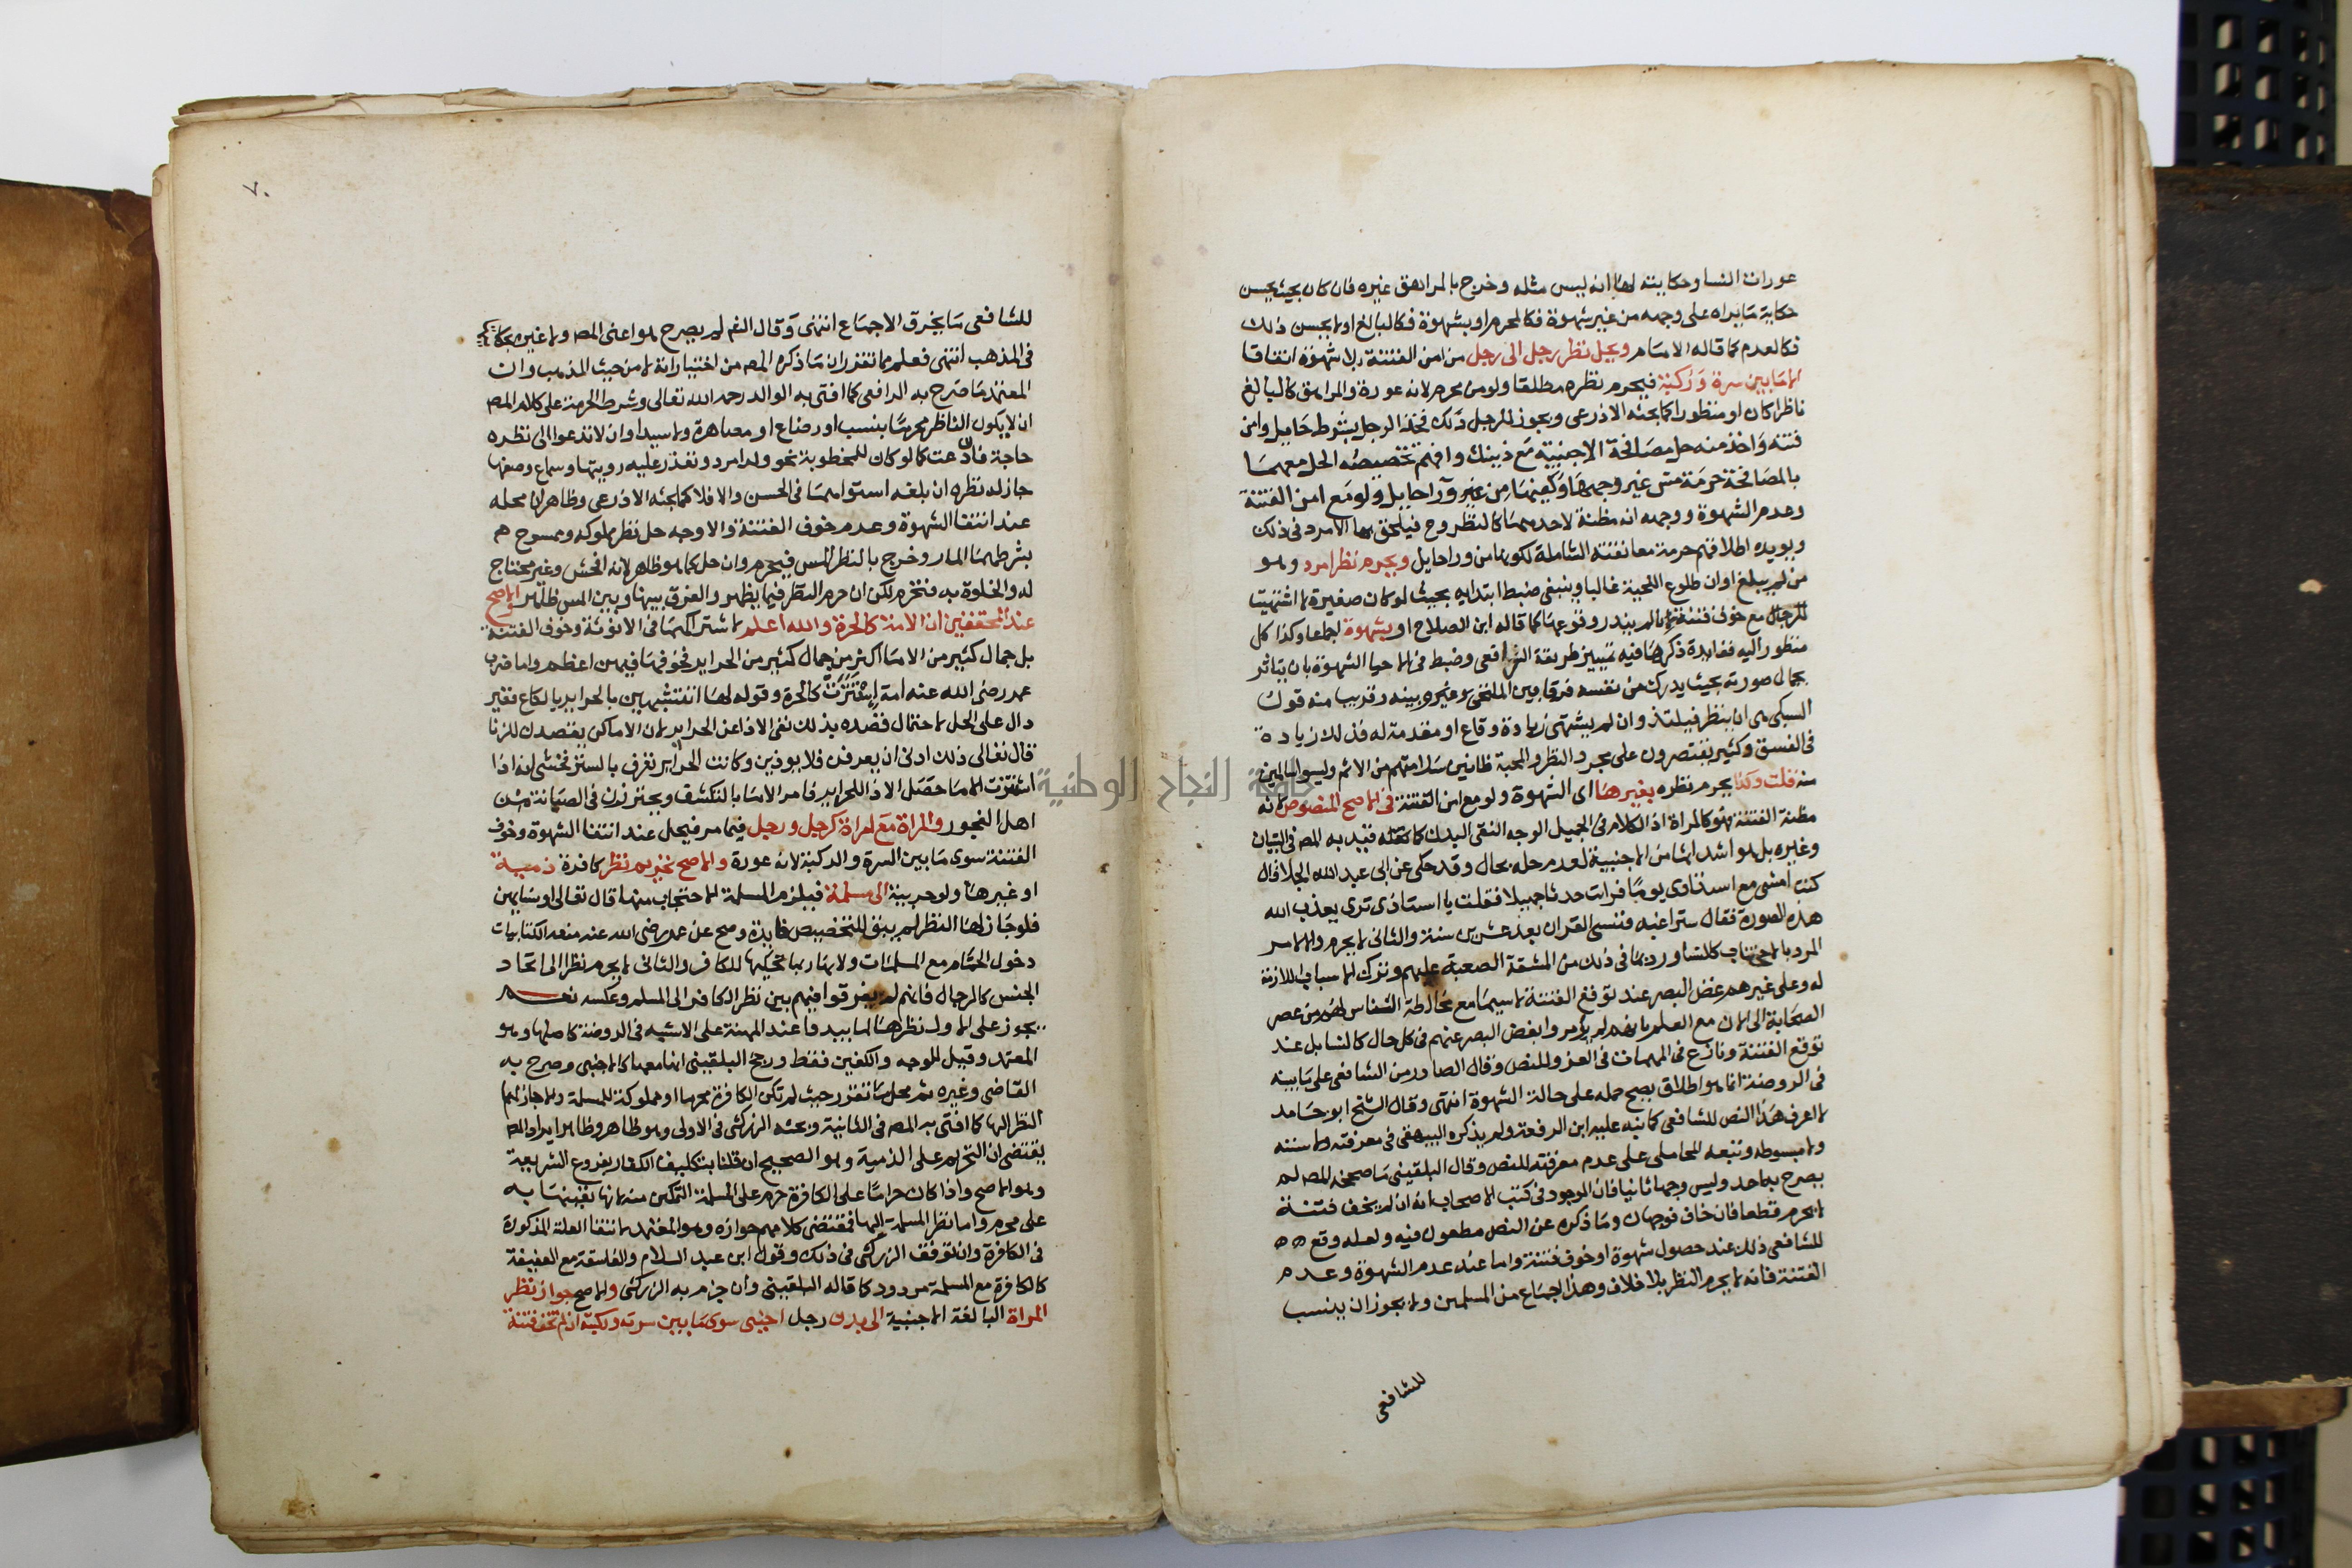 عورات النسا وحكايته لها انه ليس مثله وخرج بالمراهق غيره فان كان بحيث يحسن
حكاية ما يراه على وجهه من غير شهوة فكالمحرم او بشهوة فكالبالغ اولا يحسن ذلك
فكالعدم كما قاله الامام ويحل نظر رجل الى رجل من امن الفتنة بلا شهوة اتفاقا
الا ما بين سرة وركبة فيحرم نظره مطلقا ولو من محرم لانه عورة والمراهق كالبالغ
ناظرا كان او منظورا كما بحثه الاذرعى ويجوز للرجل دلك فخذ الرجل بشرط حايل وامن
فتنه واخذ منه حل مصافحة الاجنبية مع ذينك وافهم تخصيصه الحل معهما
بالمصافحة حرمة مس غير وجهها وكفيها من غير ورا حايل ولو مع امن الفتنة
وعدم الشهوة ووجهه انه مظنة لاحدهما كالنظر وح فيلحق بها الامرد فى ذلك
ويويده اطلاقهم حرمة معانقته الشاملة لكونها من ورا حايل ويحرم نظر امرد وهو
من لم يبلغ اوان طلوع اللحية غالبا وينبغى ضبط ابتدايه بحيث لو كان صغيرة لاشتهيت
للرجال مع خوف فتنة بان لم يندر وقوعها كما قاله ابن الصلاح او بشهوة اجماعا وكذا كل
منظور اليه ففايدة ذكرها فيه تمييز طريقة الرافعى وضبط فى الاحيا الشهوة بان يتاثر
بجمال صورته بحيث يدرك من نفسه فرقا بين الملتحى وغيره وبينه وقريب منه قول
السبكى هى ان ينظر فيلتذ وان لم يشتهى زيادة وقاع او مقدمة له فذلك زيادة
فى الفسق وكثير يقتصرون على مجرد النظر والمحبة ظانين سلامتهم من الاثم وليسوا سالمين
منه قلت وكذا يحرم نظره بغيرها اى الشهوة ولو مع امن الفتنة فى الاصح المنصوص لانه
مظنة الفتنة فهو كالمراة اذ الكلام فى الجميل الوجه النقى البدن كما قيد به المص فى التبيان
وغيره بل هو اشد اثما من الاجنبية لعدم حله بحال وقد حكى عن ابى عبد الله الجلا قال
كنت امشى مع استاذى يوما فرايت حدثا جميلا فقلت يا استاذى ترى يعذب الله
هذه الصورة فقال سترا غبه فنسى القران بعد عشرين سنة والثانى لا يحرم والا لامر
المرد بالاحتجاب كالنسا ورد بما فى ذلك من المشقة الصعبة عليهم وترك الاسباب اللازمة
له وعلى غيرهم غض البصر عند توقع الفتنة لا سيما مع مخالطة الناس لهم من عصر
الصحابة الى الان مع العلم بانهم لم يؤمروا بغض البصر عنهم فى كل حال كالنسا بل عند
توقع الفتنة ونازع فى المهمات فى العزو للنص وقال الصادر من الشافعى على ما بينه
فى الروضة انما هو اطلاق يصح حمله على حالة الشهوة انتهى وقال الشيخ ابو حامد
لا اعرف هذا النص للشافعى كما نبه عليه ابن الرفعة ولم يذكره البيهقى فى معرفته ولا سننه
ولا مبسوطه وتبعه المحاملى على عدم معرفته للنص وقال البلقينى ما صححه المص لم
يصرح به احد وليس وجها ثانيا فان الموجود فى كتب الاصحاب انه ان لم يخف فتنة
لا يحرم قطعا فان خاف فوجهان وما ذكره عن النص مطعون فيه ولعله وقع
للشافعى ذلك عند حصول شهوة او خوف فتنة واما عند عدم الشهوة وعدم
الفتنة فانه لا يحرم النظر بلا خلاف وهذا اجماع من المسلمين ولا يجوز ان ينسب
للشافعى
٧٠
للشافعى ما يخرق الاجماع انتهى وقال الفم لم يصرح هو اعنى المص ولا غيره بحكايته
فى المذهب انتهى فعلم مما تقرر ان ما ذكره المص من اختياراته لا من حيث المذهب وان
المعتمد ما صرح به الرافعى كما افتى به الوالد رحمه الله تعالى وشرط الحرمة على كلام المص
ان لا يكون الناظر محرما بنسب او رضاع او مصاهرة ولا سيدا وان لا تدعو الى نظره
حاجة فان دعت كما لو كان للمخطوبة نحو ولد امرد وتعذر عليه رويتها وسماع وصفها
جاز له نظره ان بلغه استواهما فى الحسن والا فلا كما بحثه الاذرعى وظاهر ان محله
عند انتفا الشهوة وعدم خوف الفتنة والاوجه حل نظر مملوكه وممسوح هم
بشرطهما المار وخرج بالنظر المس فيحرم وان حل كما هو ظاهر لانه افحش وغير محتاج
له والخلوة به فتحرم لكن ان حرم النظر فيما يظهر والفرق بينها وبين المس ظاهر والاصح
عند المحققين ان الامة كالحرة والله اعلم لاشتراكهما فى الانوثة وخوف الفتنة
بل جمال كثير من الاما اكثر من جمال كثير من الحراير فخوفها فيهن اعظم واما ضرب
عمر رضى الله عنه امة استترت كالحرة وقوله لها اتتشبهين بالحراير يا لكاع فغير
دال على الحل لاحتمال قصده بذلك نفى الاذا عن الحراير لان الاما كن يقصدن للزنا
قال تعالى ذلك ادنى ان يعرفن فلا يوذين وكانت الحراير تعرف بالستر فخشى انه اذا
استترت الاما حصل الاذا للحراير فامر الاما بالتكشف ويحترزن فى الصيانة من
اهل الفجور والمراة مع امراة كرجل ورجل فيما مر فيحل عند انتفا الشهوة وخوف
الفتنة سوى ما بين السرة والركبة لانه عورة والاصح تحريم نظر كافرة ذمية
او غيرها ولو حربية الى مسلمة فيلزم المسلمة الاحتجاب منها قال تعالى او نسايهن
فلو جاز لها النظر لم يبق للتخصيص فايدة وصح عن عمر رضى الله عنه منعه الكتابيات
دخول الحمام مع المسلمات ولانها ربما تحكيها للكافر والثانى لا يحرم نظرا الى اتحاد
الجنس كالرجال فانهم لم يفرقوا فيهم بين نظر الكافر الى المسلم وعكسه نعم
يجوز على الاول نظرها لما يبدو عند المهنة على الاشبه فى الروضة كاصلها وهو
المعتمد وقيل للوجه والكفين فقط ورجح البلقينى انها معها كالاجنبى وصرح به
القاضى وغيره ثم محل ما تقرر حيث لم تكن الكافرة محرما او مملوكة للمسلمة والا جاز لهما
النظر اليها كما افتى به المص فى الثانية وبحثه الزركشى فى الاولى وهو ظاهر وظاهر ايراد المص
يقتضى ان التحريم على الذمية وهو الصحيح ان قلنا بتكليف الكفار بفروع الشريعة
وهو الاصح واذا كان حراما على الكافرة حرم على المسلمة التمكين منه لانها تعينها به
على محرم واما نظر المسلمة اليها فمقتضى كلامهم جوازه وهو المعتمد لانتفا العلة المذكورة
فى الكافرة وان توقف الزركشى فى ذلك وقول ابن عبد السلام والفاسقة مع العفيفة
كالكافرة مع المسلمة مردود كما قاله البلقينى وان جزم به الزركشى والاصح جواز نظر
المراة البالغة الاجنبية الى بدن رجل اجنبى سوى ما بين سرته وركبته ان لم تخف فتنة
جامعة النجاح الوطنية